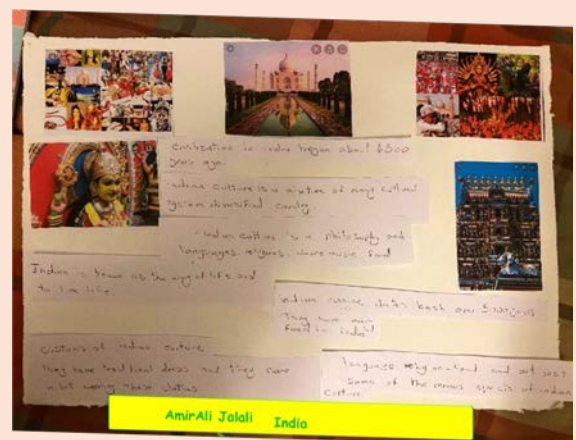 civilization in india began about 6500
years ago.
indian culture is a mixture of many cultural
system diversified country.
indian culture is a philosophy and
languages, religions, dance music food
Indian is known as the way of life and
to live life.
indian cuisine dates back over 5000 years
They have own
food in india
customs of indian culture
they have traditional dress and they care
a lot wearing these clothes
language religion and and art just
some of the various aspects of indian
culture
AmirAli Jalali India